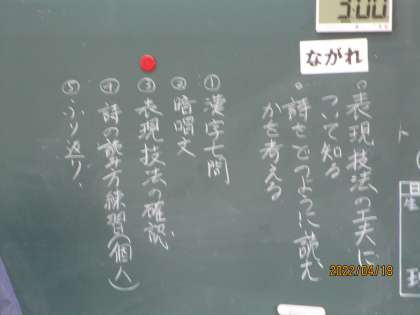 3:00
ながれ
。表現技法の工夫に
ついて知る
。詩をどのように読む
かを考える
①漢字七問
②暗唱文
③表現技法の確認
④詩の読み方練習(個人)
⑤ふり返り
ト
日
生
2022/04/18